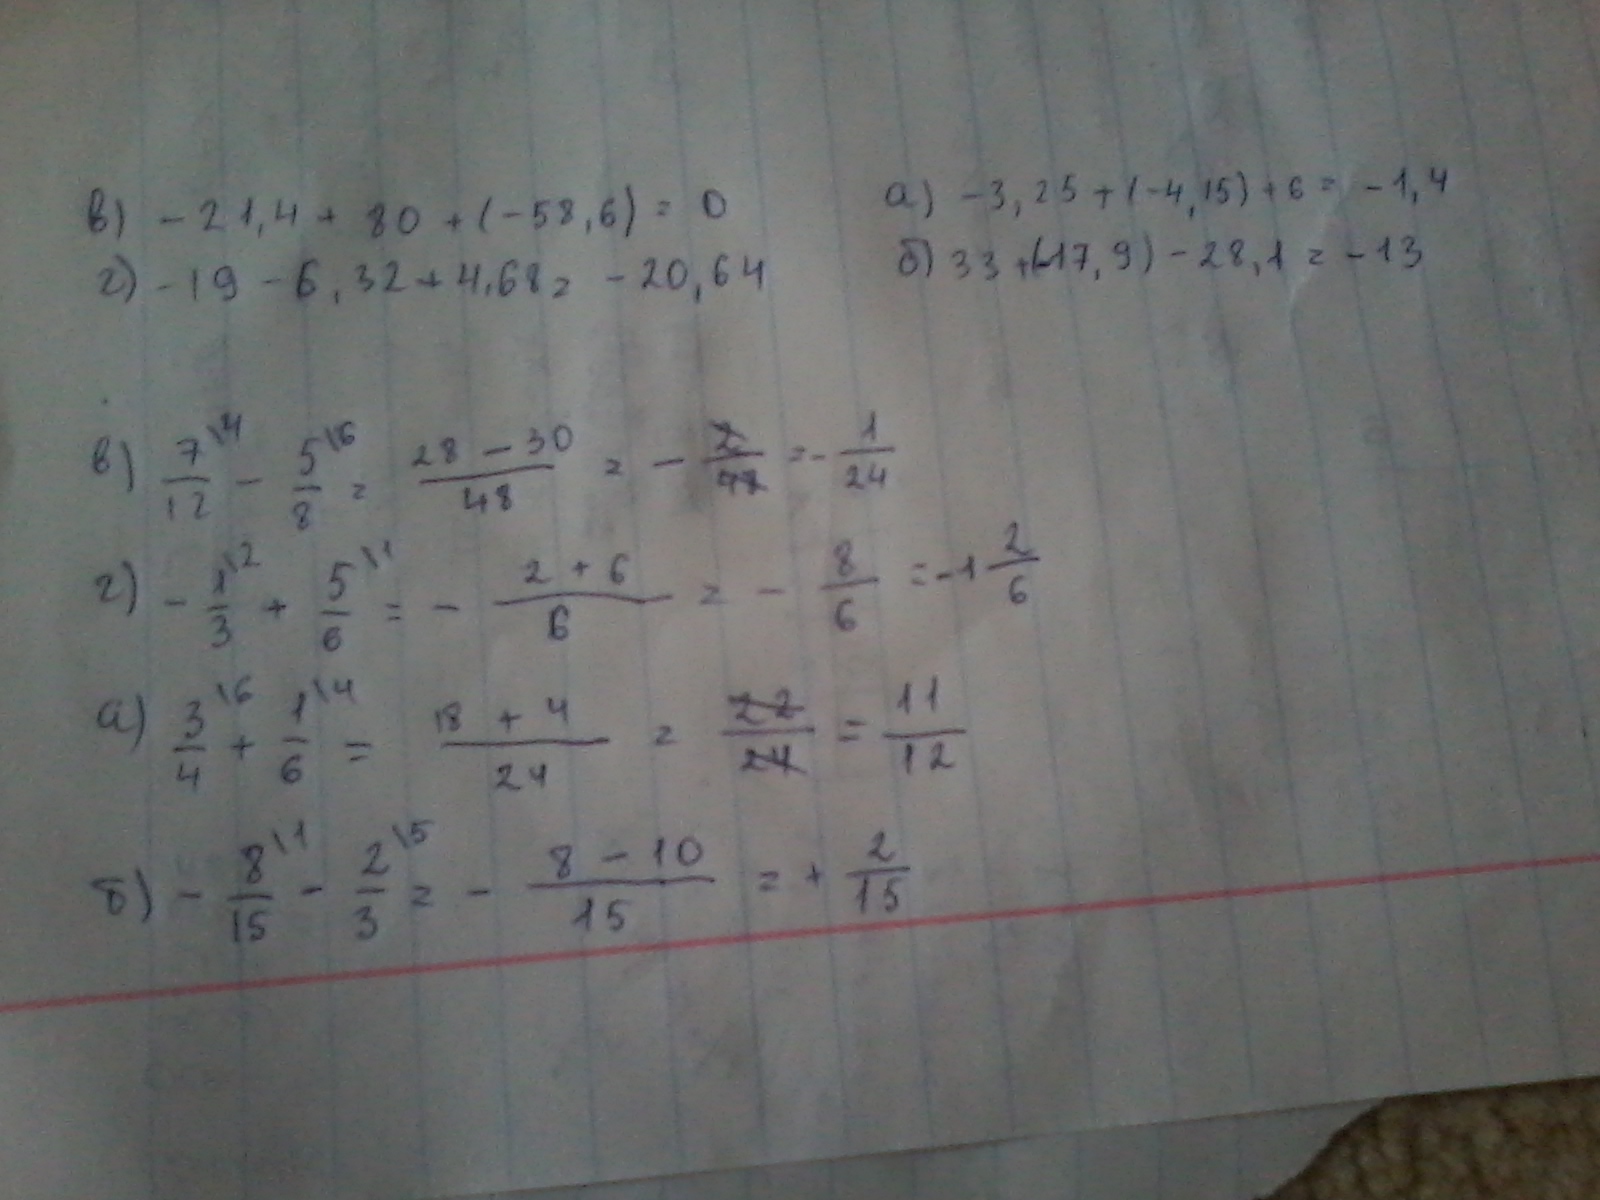 в) -21,4 + 80 + (-58,6) = 0
г) -19 - 6,32 + 4,68 = -20,64
а) -3,25 + (-4,15) + 6 = -1,4
б) 33 + (-17,9) - 28,1 = -13
в) 7\4/12 - 5\6/8 = 28 - 30/48 = - 2/48 = - 1/24
г) - 1\2/3 + 5\1/6 = - 2 + 6/6 = - 8/6 = -1 2/6
а) 3\6/4 + 1\4/6 = 18 + 4/24 = 22/24 = 11/12
б) - 8\1/15 - 2\5/3 = - 8 - 10/15 = + 2/15